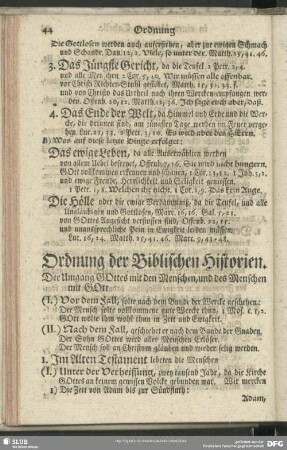 44 Ordnung
Die Gottlosen werden auch auferstehen, aber zur ewigen Schmach
und Schande. Dan. 12, 2. Viele, so unter der. Matth. 25, 41. 46.
3. Das Jüngste Gericht, da die Teufel 2 Petr. 2, 4.
und alle Menschen 2 Cor. 5, 10. Wir müssen alle offenbar.
vor Christi Richter-Stuhl gestellet, Matth. 25, 31. 32. f.
und von Christo das Urtheil nach ihren Wercken empfangen werden.
den. Offenb. 20, 12. Matth. 12, 36. Ich sage euch aber, daß.
4. Das Ende der Welt, da Himmel und Erde und die Wer-
cke, die drinnen sind, am jüngsten Tage werden im Feuer zerge-
hen. Luc. 21, 33. 2 Petr. 3, 10. Es wird aber des HErrn.
B) Was auf diese letzte Dinge erfolget:
Das ewige Leben, da alle Auserwählten werden
von allem Uebel befreyet, Offenb. 7, 16. Sie wird nicht hungern.
GOtt vollkommen erkennen und schauen, 1 Cor. 13, 12. 1 Joh. 3, 2.
und ewige Freude, Herrlichkeit und Seligkeit geniessen.
1 Petr. 1, 8. Welchen ihr nicht. 1 Cor. 2, 9. Das kein Auge.
Die Hölle oder die ewige Verdammniß, da die Teufel, und alle
Unglaubigen und Gottlosen, Marc. 16, 16. Gal. 5, 21.
von GOttes Angesicht verstossen sind, Offenb. 22, 15.
und unaussprechliche Pein in Ewigkeit leiden müssen.
Luc. 16, 24. Matth. 25, 41. 46. Marc. 9, 43-48.
Ordnung der Biblischen Historien.
Der Umgang GOttes mit den Menschen, und des Menschen
mit GOtt
(I.) Vor dem Fall, solte nach dem Bunde der Wercke geschehen:
Der Mensch solte vollkommene gute Wercke thun. 1 Mos. c. 1. 2.
GOtt wolte ihm wohl thun in Zeit und Ewigkeit.
(II.) Nach dem Fall, geschiehet er nach dem Bunde der Gnaden.
Der Sohn GOttes wird aller Menschen Erlöser.
Der Mensch soll an Christum gläuben und wieder selig werden.
1. Im Alten Testament lebeten die Menschen
(I.) Unter der Verheissung, zwey tausend Jahr, da die Kirche
GOttes an keinem gewissen Volcke gebunden war. Wir mercken
1) Die Zeit von Adam bis zur Sündfluth:
Adam,
SLUB
Wir führen Wissen.